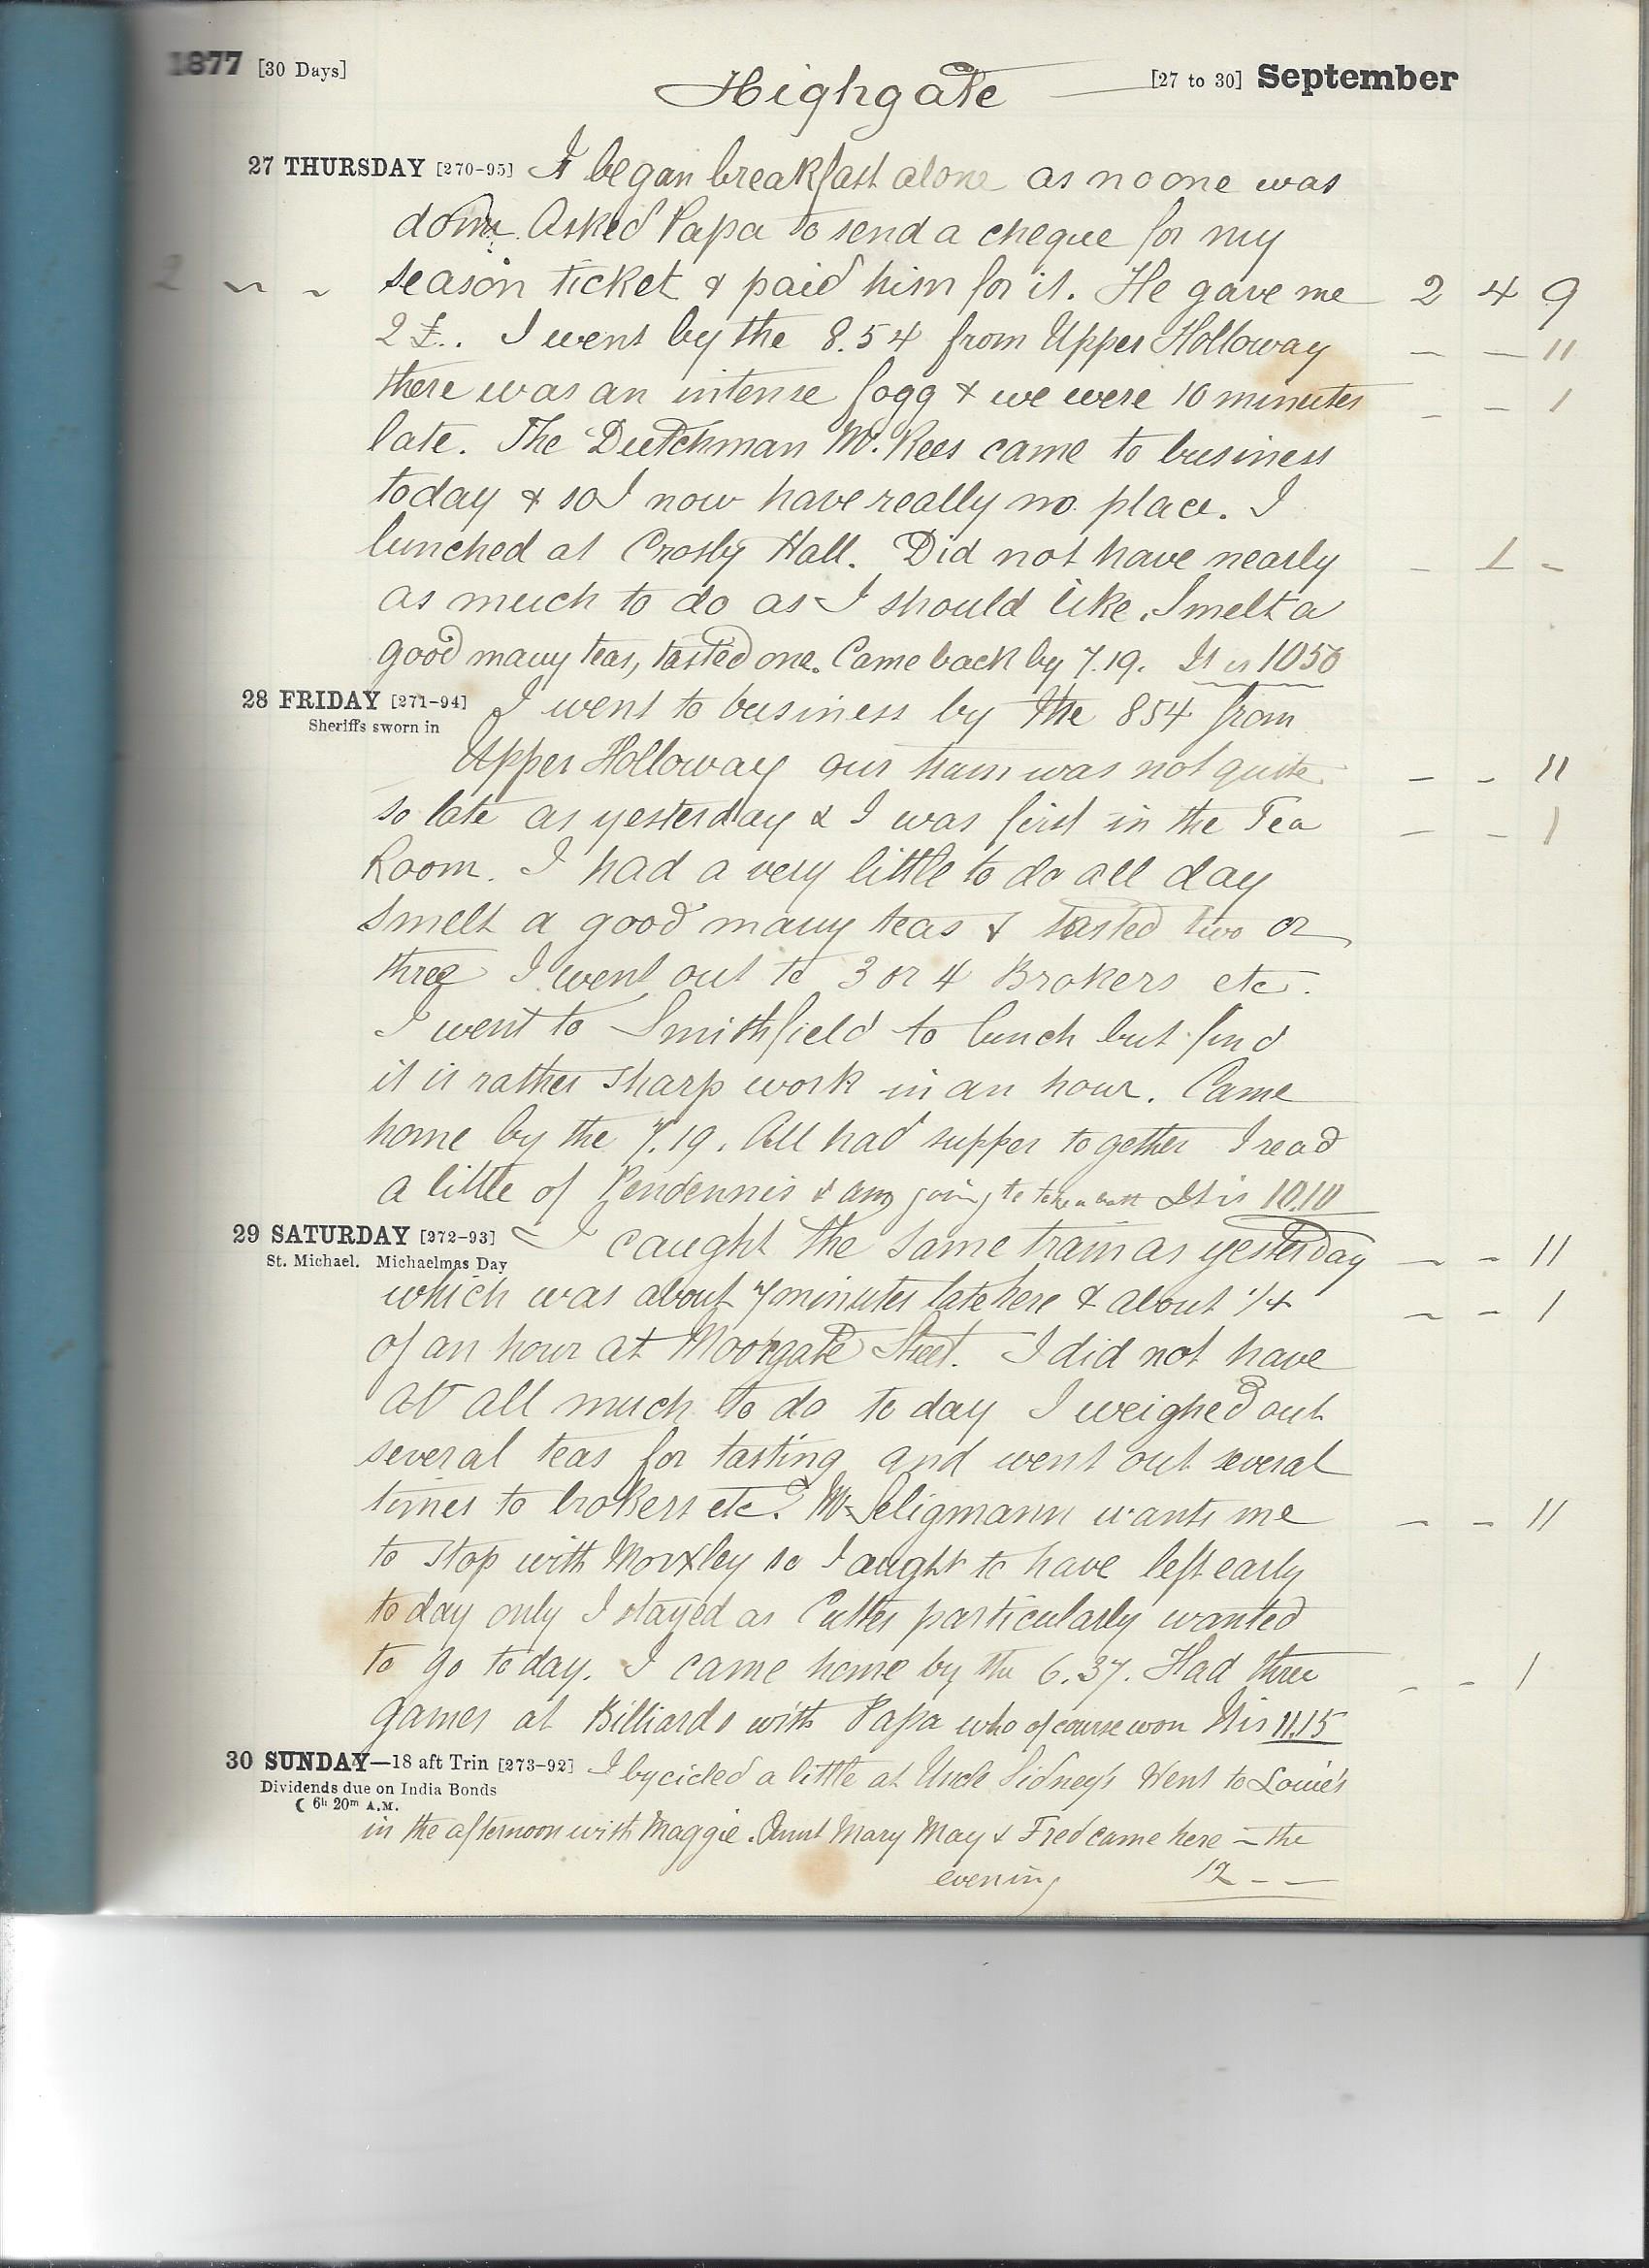 1877 [30 Days] Highgate [27 to 30] September
27 THURSDAY [270-95] I began breakfast alone as no one was
down. Asked Papa to send a cheque for my
2 ~ ~ season ticket & paid him for it. He gave me 2 4 9
2 £.. I went by the 8.54 from Upper Holloway – – 11
there was an intense fogg & we were 10 minutes – – 1
late. The Dutchman Mr. Rees came to business
today & so I now have really no place. I
lunched at Crosby Hall. Did not have nearly – 1 –
as much to do as I should like. Smelt a
good many teas, tasted one. Came back by 7.19. It is 1050
28 FRIDAY [271-94] I went to business by the 854 from
Sheriffs sworn in
Upper Holloway our train was not quite – – 11
so late as yesterday & I was first in the Tea – – 1
Room. I had a very little to do all day
smelt a good many teas & tasted two or
three I went out to 3 or 4 Brokers etc.
I went to Smithfield to lunch but find
it is rather sharp work in an hour. Came
home by the 7.19. All had supper together I read
a little of Pendennis & am going to take a bath It is 10.10
29 SATURDAY [272-93] I caught the same train as yesterday – – 11
St. Michael. Michaelmas Day
which was about 7 minutes late here & about 1/4 – – 1
of an hour at Moorgate Street. I did not have
at all much to do to day I weighed out
several teas for tasting and went out several
times to brokers etc. Mr Seligmann wants me – – 11
to stop with Moxley so I aught to have left early
to day only I stayed as Cutter particularly wanted
to go to day. I came home by the 6.37. Had three – – 1
games at Billiards with Papa who of course won It is 11.15
30 SUNDAY—18 aft Trin [273-92] I bycicled a little at Uncle Sidney's Went to Louie's
Dividends due on India Bonds
☾ 6h 20m A.M.
in the afternoon with Maggie. Aunt Mary May & Fred came here in the
evening 12 – –